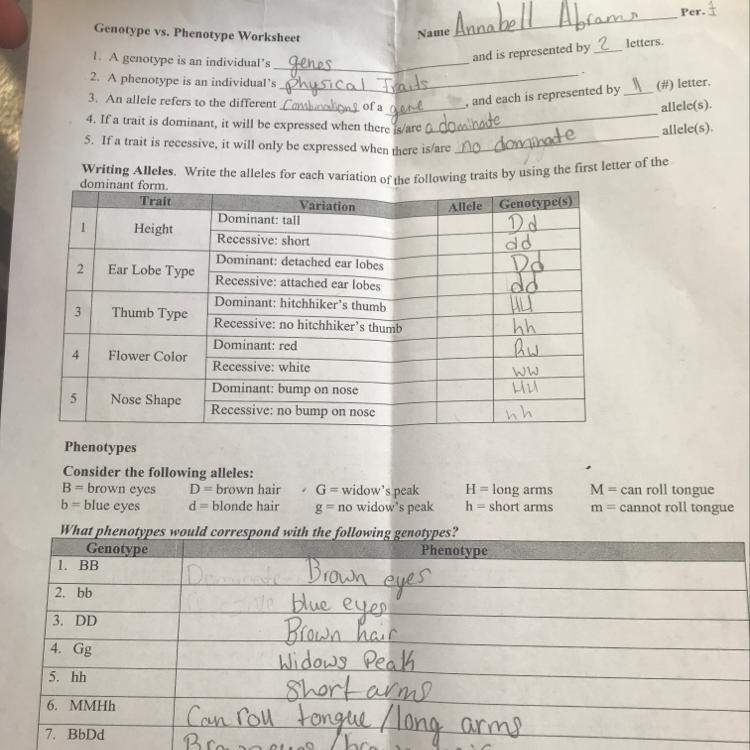 Genotype vs. Phenotype Worksheet Name Annabell Abrams Per. 1
1. A genotype is an individual's genes and is represented by 2 letters.
2. A phenotype is an individual's physical Traits.
3. An allele refers to the different Combinations of a gene, and each is represented by 1 (#) letter.
4. If a trait is dominant, it will be expressed when there is/are a dominate allele(s).
5. If a trait is recessive, it will only be expressed when there is/are no dominate allele(s).
Writing Alleles. Write the alleles for each variation of the following traits by using the first letter of the
dominant form.
Trait Variation Allele Genotype(s)
1 Height Dominant: tall Dd
Recessive: short dd
2 Ear Lobe Type Dominant: detached ear lobes Dd
Recessive: attached ear lobes dd
3 Thumb Type Dominant: hitchhiker's thumb
Recessive: no hitchhiker's thumb hh
4 Flower Color Dominant: red Rw
Recessive: white ww
5 Nose Shape Dominant: bump on nose
Recessive: no bump on nose hh
Phenotypes
Consider the following alleles:
B = brown eyes D = brown hair G = widow's peak H = long arms M = can roll tongue
b = blue eyes d = blonde hair g = no widow's peak h = short arms m = cannot roll tongue
What phenotypes would correspond with the following genotypes?
Genotype Phenotype
1. BB Brown eyes
2. bb blue eyes
3. DD Brown hair
4. Gg Widows Peak
5. hh Short arms
6. MMHh Can roll tongue / long arms
7. BbDd